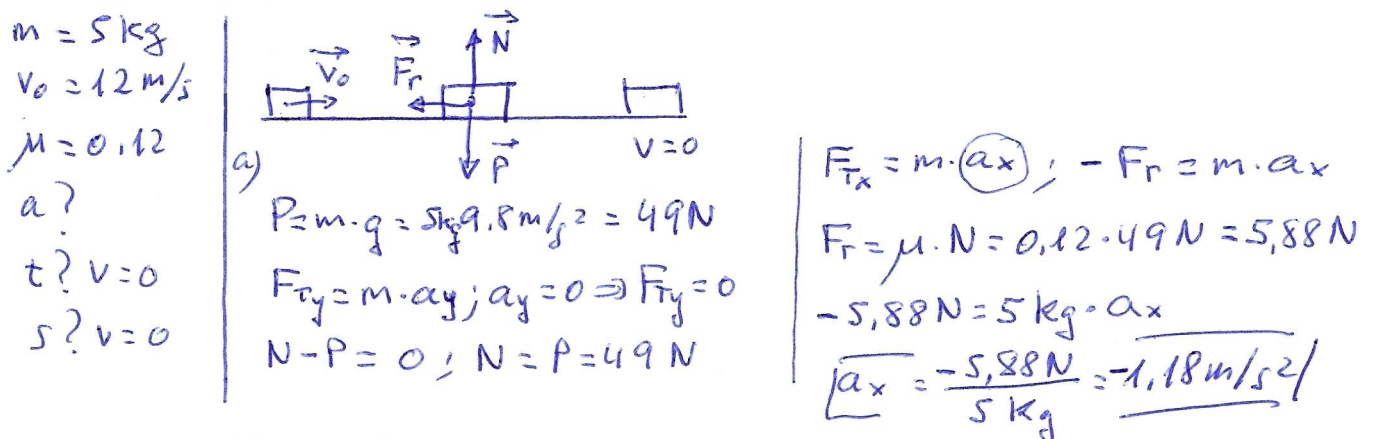 m = 5 kg
v₀ = 12 m/s
μ = 0,12
a?
t? v=0
s? v=0
N⃗
v⃗₀
F⃗r
P⃗
v=0
a)
P=m·g = 5kg 9,8 m/s² = 49N
F_Ty = m·ay; ay = 0 ⇒ F_Ty = 0
N-P = 0; N = P = 49 N
F_Tx = m·ax; -Fr = m·ax
Fr = μ·N = 0,12·49 N = 5,88 N
-5,88N = 5 kg·ax
ax = -5,88N / 5 kg = -1,18 m/s²